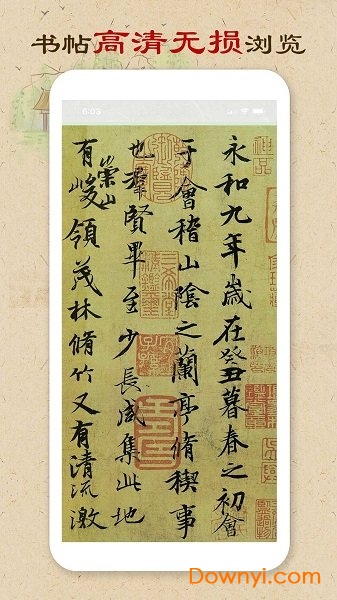 书帖高清无损浏览
6:03
永和九年歲在癸丑暮春之初會
于會稽山陰之蘭亭脩稧事
也羣賢畢至少長咸集此地
有崇山峻領茂林脩竹又有清流激
Downyi.com